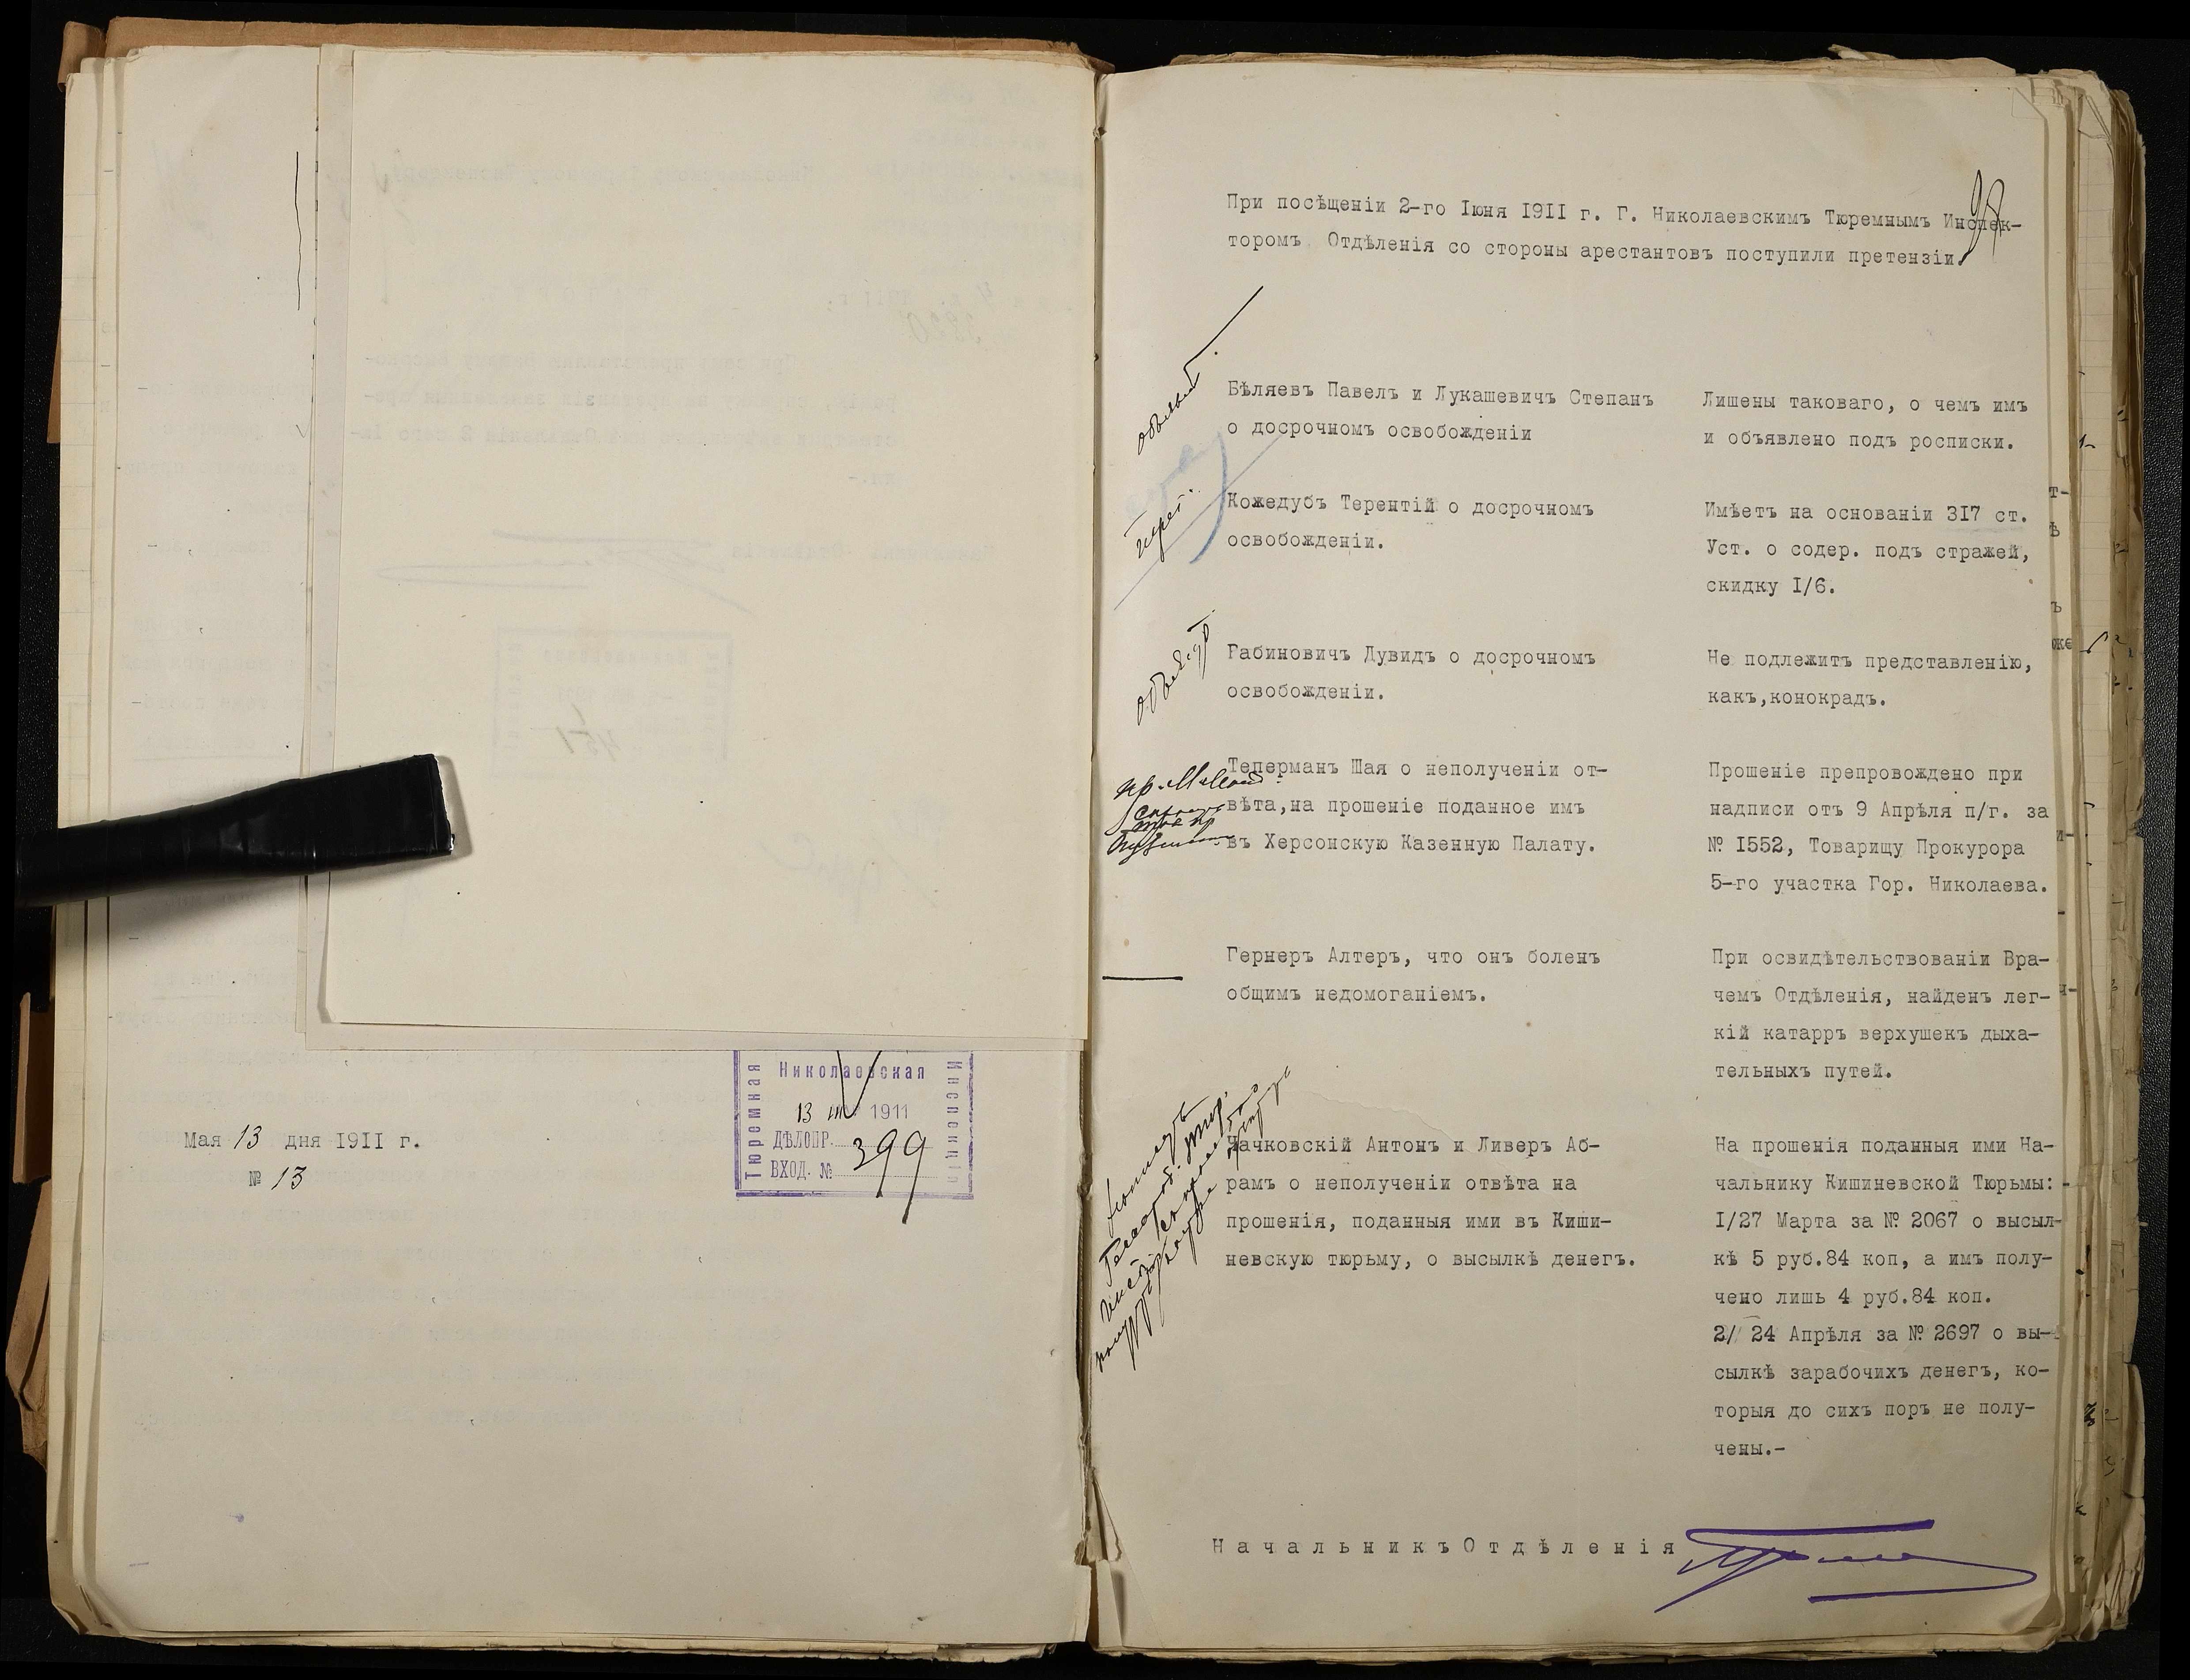 Николаевская
Тюремная
Инспекція
13 1911
ДѢЛОПР.
ВХОД. № 399
Мая 13 дня 1911 г.
№ 13
98
При посѣщеніи 2-го Іюня 1911 г. Г. Николаевскимъ Тюремнымъ Инспек-
торомъ Отдѣленія со стороны арестантовъ поступили претензіи.
Бѣляевъ Павелъ и Лукашевичъ Степанъ
о досрочномъ освобожденіи
Лишены таковаго, о чемъ имъ
и объявлено подъ росписки.
Кожедубъ Терентій о досрочномъ
освобожденіи.
Имѣетъ на основаніи 317 ст.
Уст. о содер. подъ стражей,
скидку I/6.
Рабиновичъ Дувидъ о досрочномъ
освобожденіи.
Не подлежитъ представленію,
какъ,конокрадъ.
Теперманъ Шая о неполученіи от-
вѣта,на прошеніе поданное имъ
въ Херсонскую Казенную Палату.
Прошеніе препровождено при
надписи отъ 9 Апрѣля п/г. за
№ I552, Товарищу Прокурора
5-го участка Гор. Николаева.
Гернеръ Алтеръ, что онъ боленъ
общимъ недомоганіемъ.
При освидѣтельствованіи Вра-
чемъ Отдѣленія, найденъ лег-
кій катарръ верхушекъ дыха-
тельныхъ путей.
Чачковскій Антонъ и Ливеръ Аб-
рамъ о неполученіи отвѣта на
прошенія, поданныя ими въ Киши-
невскую тюрьму, о высылкѣ денегъ.
На прошенія поданныя ими На-
чальнику Кишиневской Тюрьмы:
I/27 Марта за № 2067 о высыл-
кѣ 5 руб.84 коп, а имъ полу-
чено лишь 4 руб.84 коп.
2/ 24 Апрѣля за № 2697 о вы-
сылкѣ зарабочихъ денегъ, ко-
торыя до сихъ поръ не полу-
чены.-
Начальникъ Отдѣленія